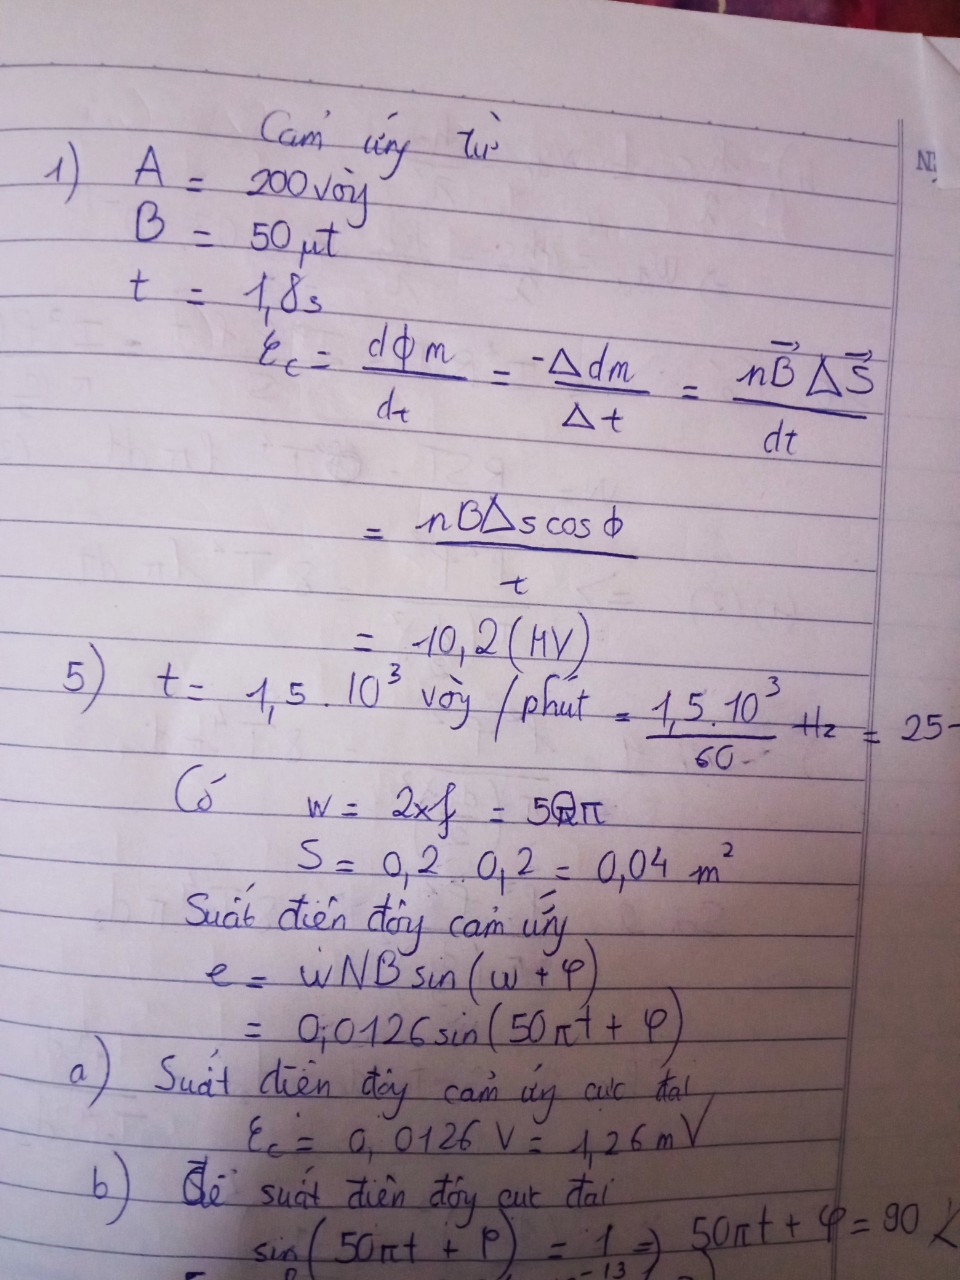 Cảm ứng từ
1) A = 200 vòng
B = 50 μt
t = 1,8s
Ɛc = dɸm / dt = -Δdm / Δt = nB⃗ ΔS⃗ / dt
= nBΔs cos ɸ / t
= 10,2 (HV)
5) t = 1,5 . 10³ vòng / phút = 1,5.10³ / 60 Hz = 25
Có w = 2xf = 50π
S = 0,2 . 0,2 = 0,04 m²
Suất điện đây cảm ứng
e = wNB sin (w + φ)
= 0,0126 sin (50πt + φ)
a) Suất điện đây cảm ứng cực đại
Ɛc = 0,0126 V = 1,26 mV
b) Để suất điện đây cực đại
sin (50πt + φ) = 1 => 50πt + φ = 90